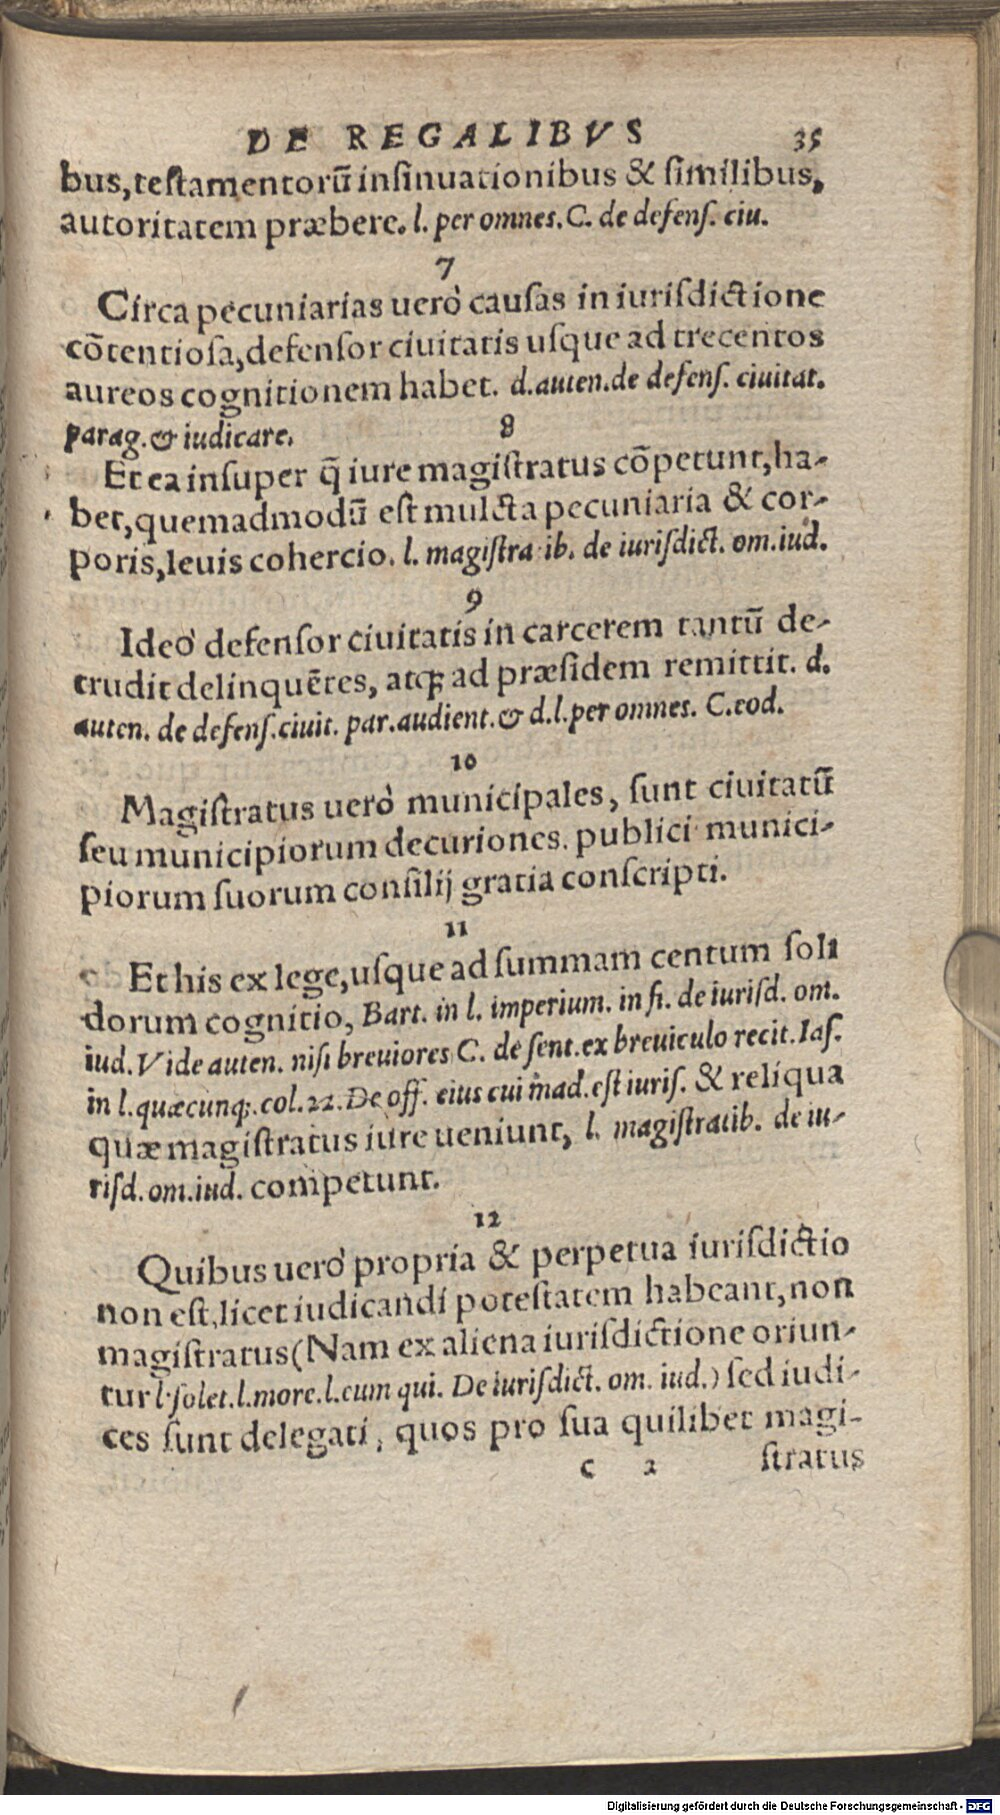 DE REGALIBVS 35
bus, testamentorū insinuationibus & similibus,
autoritatem præbere. l. per omnes. C. de defens. ciu.
7
Circa pecuniarias uerò causas in iurisdictione
cōtentiosa, defensor ciuitatis usque ad trecentos
aureos cognitionem habet. d. auten. de defens. ciuitat.
parag. & iudicare.
8
Et ea insuper q̄ iure magistratus cōpetunt, ha-
bet, quemadmodū est mulcta pecuniaria & cor-
poris, leuis cohercio. l. magistra ib. de iurisdict. om. iud.
9
Ideò defensor ciuitatis in carcerem tantū de-
trudit delinquētes, atq; ad præsidem remittit. d.
auten. de defens. ciuit. par. audient. & d. l. per omnes. C. eod.
10
Magistratus uerò municipales, sunt ciuitatū
seu municipiorum decuriones. publici munici-
piorum suorum consilij gratia conscripti.
11
Et his ex lege, usque ad summam centum soli
dorum cognitio, Bart. in l. imperium. in fi. de iurisd. om.
iud. Vide auten. nisi breuiores C. de sent. ex breuiculo recit. Ias.
in l. quæcunq;. col. 22. De off. eius cui mād. est iuris. & reliqua
quæ magistratus iure ueniunt, l. magistratib. de iu-
risd. om. iud. competunt.
12
Quibus uerò propria & perpetua iurisdictio
non est, licet iudicandi potestatem habeant, non
magistratus (Nam ex aliena iurisdictione oriun-
tur l. solet. l. more. l. cum qui. De iurisdict. om. iud.) sed iudi-
ces sunt delegati, quos pro sua quilibet magi-
c 2 stratus
Digitalisierung gefördert durch die Deutsche Forschungsgemeinschaft - DFG